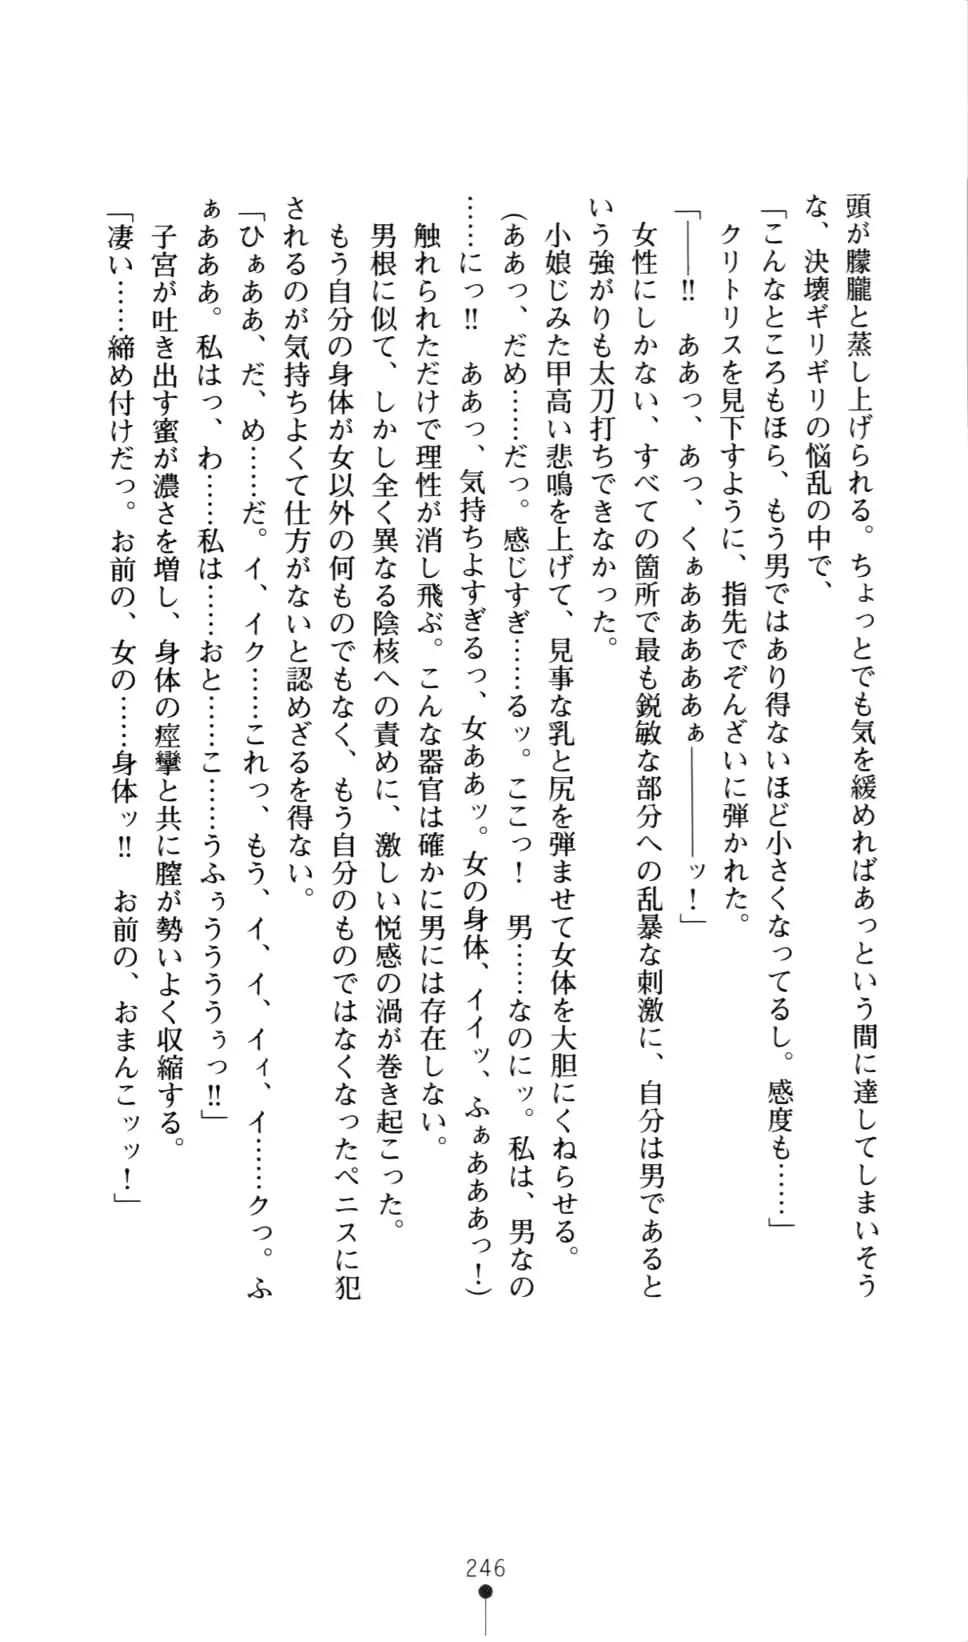 頭が朦朧と蒸し上げられる。ちょっとでも気を緩めればあっという間に達してしまいそう
な、決壊ギリギリの悩乱の中で、
「こんなところもほら、もう男ではあり得ないほど小さくなってるし。感度も……」
クリトリスを見下すように、指先でぞんざいに弾かれた。
「――!!　ああっ、あっ、くぁあああああぁ――――ッ！」
女性にしかない、すべての箇所で最も鋭敏な部分への乱暴な刺激に、自分は男であると
いう強がりも太刀打ちできなかった。
小娘じみた甲高い悲鳴を上げて、見事な乳と尻を弾ませて女体を大胆にくねらせる。
(ああっ、だめ……だっ。感じすぎ……るッ。ここっ！　男……なのにッ。私は、男なの
……にっ!!　ああっ、気持ちよすぎるっ、女ああッ。女の身体、イイッ、ふぁあああっ！)
触れられただけで理性が消し飛ぶ。こんな器官は確かに男には存在しない。
男根に似て、しかし全く異なる陰核への責めに、激しい悦感の渦が巻き起こった。
もう自分の身体が女以外の何ものでもなく、もう自分のものではなくなったペニスに犯
されるのが気持ちよくて仕方がないと認めざるを得ない。
「ひぁああ、だ、め……だ。イ、イク……これっ、もう、イ、イ、イィ、イ……クっ。ふ
ぁあああ。私はっ、わ……私は……おと……こ……うふぅうううぅっ!!」
子宮が吐き出す蜜が濃さを増し、身体の痙攣と共に膣が勢いよく収縮する。
「凄い……締め付けだっ。お前の、女の……身体ッ!!　お前の、おまんこッッ！」
246